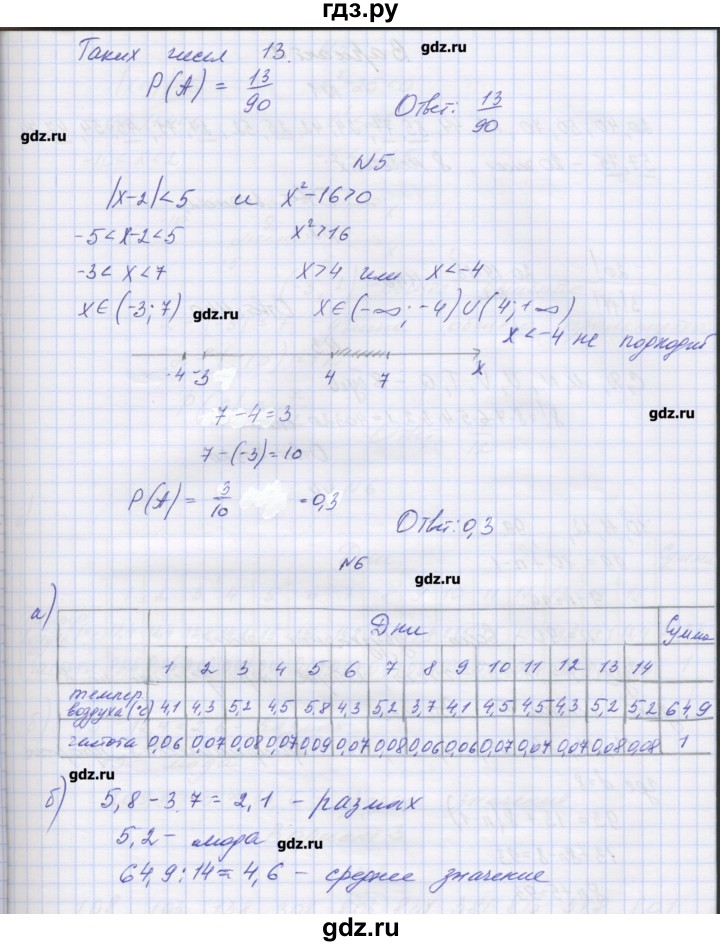 гдз.ру
Таких чисел 13.
gdz.ru
P(A) = 13/90
Ответ: 13/90
gdz.ru
N5
|x-2|<5 и x²-16>0
-5<x-2<5 x²>16
-3<x<7 x>4 или x<-4
x∈(-3;7) gdz.ru x∈(-∞;-4)∪(4;+∞)
x<-4 не подходит
-4 -3 4 7 x
7-4=3
gdz.ru
7-(-3)=10
P(A) = 3/10 =0,3
Ответ: 0,3
N6
gdz.ru
а)
Дни Сумма
1 2 3 4 5 6 7 8 9 10 11 12 13 14
темпер.
воздуха (°с) 4,1 4,3 5,2 4,5 5,8 4,3 5,2 3,7 4,1 4,5 4,5 4,3 5,2 5,2 64,9
частота 0,06 0,07 0,08 0,07 0,09 0,07 0,08 0,06 0,06 0,07 0,07 0,07 0,08 0,08 1
gdz.ru
б) 5,8-3,7=2,1 - размах
5,2 - мода
gdz.ru
64,9:14=4,6 - среднее значение
gdz.ru